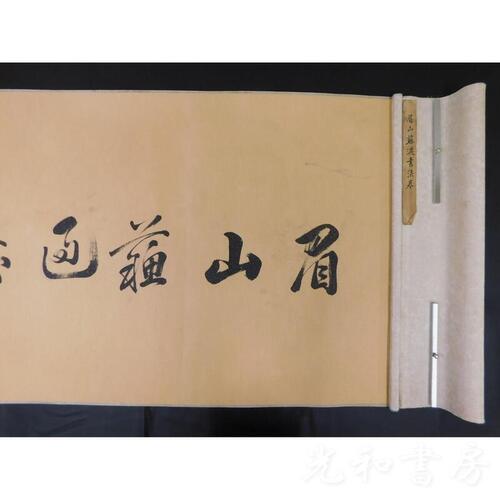 眉山蘇過
眉山蘇過書法卷
光和書房